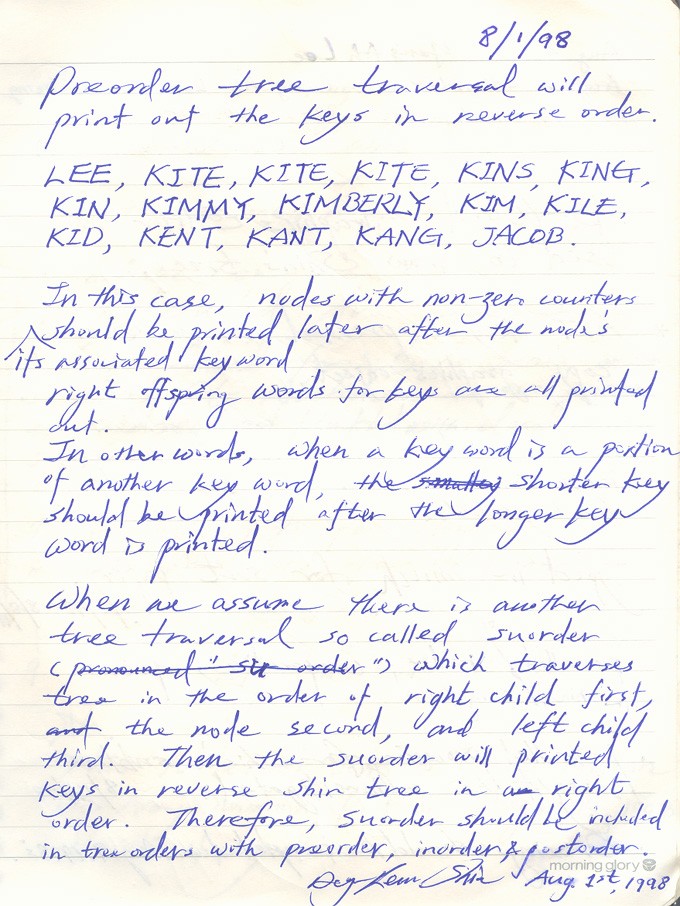 8/1/98
Preorder tree traversal will
print out the keys in reverse order.
LEE, KITE, KITE, KITE, KINS, KING,
KIN, KIMMY, KIMBERLY, KIM, KILE,
KID, KENT, KANT, KANG, JACOB.
In this case, nodes with non-zero counters
should be printed later after the node's
its associated key word
right offspring words for keys are all printed
out.
In other words, when a key word is a portion
of another key word, the smaller shorter key
should be printed after the longer key
word is printed.
When we assume there is another
tree traversal so called suorder
(pronounced "su order") which traverses
tree in the order of right child first,
and the node second, and left child
third. Then the suorder will printed
keys in reverse Shin tree in right
order. Therefore, suorder should be included
in tree orders with preorder, inorder & postorder.
morning glory
Shin Aug. 1st, 1998